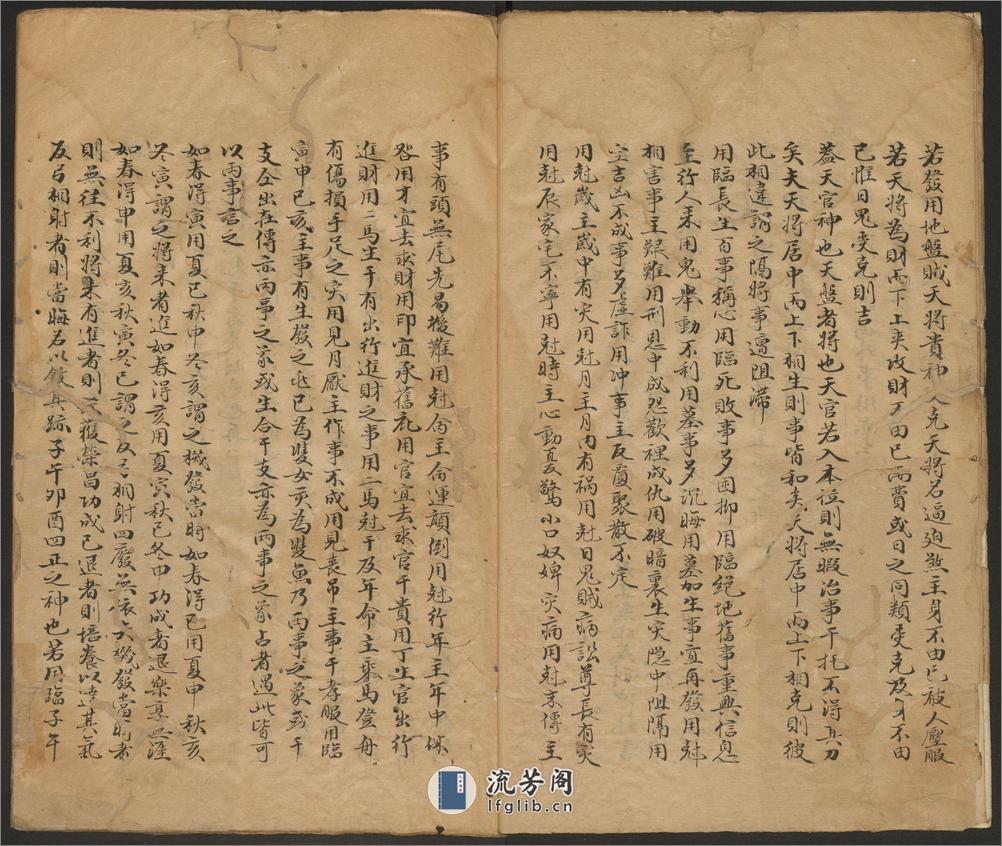 若發用地盤賊天將貴神人克天將名逼迫煞主身不由己被人壓服
若天將為財而下上夾攻財不由己而費或日之同類受克及身不由
己惟日鬼受克則吉
蓋天官神也天盤者將也天官若入本位則無暇治事干托不得其力
矣夫天將居中而上下相生則事皆和美天將居中而上下相克則彼
此相違謂之隔將事遭阻滯
用臨長生百事稱心用臨死敗事多困抑用臨絕地舊事重興信息
至行人來用鬼舉動不利用墓事多沉晦用墓加生事宜再發用尅
相害事主艱難用刑恩中成怨歡裡成仇用破暗裏生災隐中阻隔用
空吉凶不成事多虛詐用冲事主反覆聚散不定
用尅歲主歲中有災用尅月主月内有禍用尅日鬼賊病訟尊長有災
用尅辰家宅不寧用尅時主心動憂驚小口奴婢災病用尅末傳主
事有頭無尾先易後難用尅命主命運顛倒用尅行年主年中休
咎用才宜去求財用印宜承舊禮用官宜去求官干貴用丁生官出行
進財用二馬生干有出行進財之事用二馬尅干及年命主乘馬登舟
有傷損手足之災用見月厭主作事不成用見喪吊主事干孝服用臨
寅申巳亥主事有生發之兆巳為雙女亥為雙魚乃兩事之象或干
支仝出在傳亦兩事之象或生合干支亦為兩事之象占者遇此皆可
以兩事言之
如春得寅用夏巳秋申冬亥謂之機發當時如春得巳用夏申秋亥
冬寅謂之將來者進如春得亥用夏寅秋巳冬申功成者退樂享無涯
如春得申用夏亥秋寅冬巳謂之反弓相射四廢無依夫機發當時者
則無往不利將來有進者則獲榮昌功成已退者則培養以達其氣
反弓相射者則當晦名以斂其跡子午卯酉四正之神也若用臨子午
流芳阁
lfglib.cn